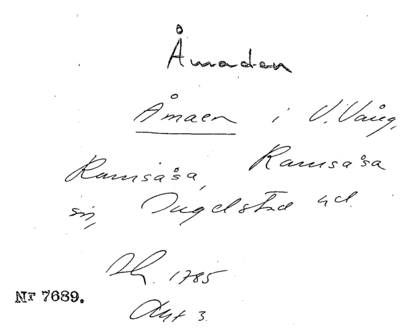 Åmaden
Åmaen i V. Vång,
Ramsåsa, Ramsåsa
sn, Ingelstad hd.
Sk. 1785
Akt 3.
Nr 7689.